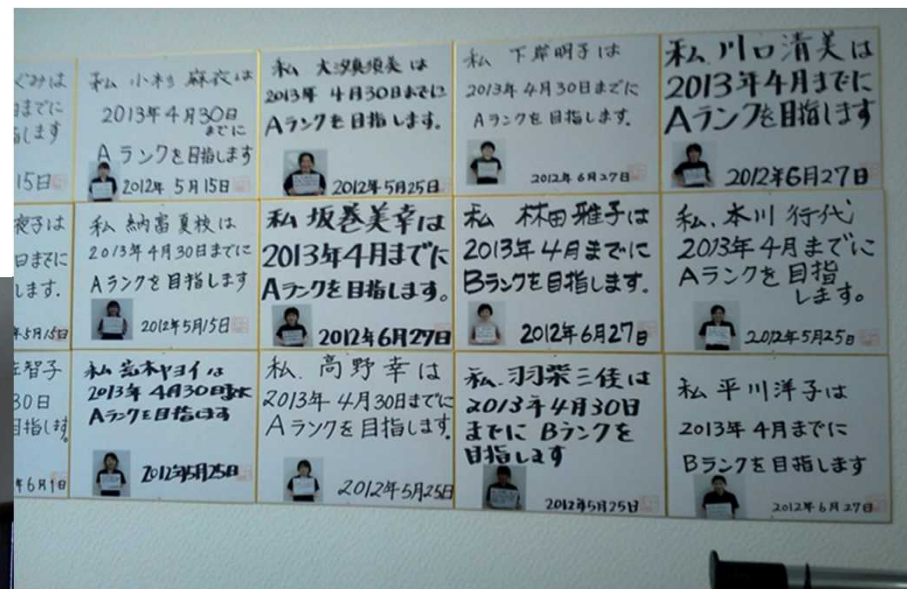 ぐみは
日までに
指します
15日
私 小杉 麻衣は
2013年4月30日
までに
Aランクを目指します
2012年 5月15日
私 大渕真須美は
2013年 4月30日までに
Aランクを目指します。
2012年5月25日
私 下岸明子は
2013年4月30日までに
Aランクを目指します.
2012年6月27日
私 川口清美は
2013年4月までに
Aランクを目指します
2012年6月27日
夜子は
日までに
します.
年5月15日
私 納富夏枝は
2013年4月30日までに
Aランクを目指します
2012年5月15日
私 坂巻美幸は
2013年4月までに
Aランクを目指します。
2012年6月27日
私 林田雅子は
2013年4月までに
Bランクを目指します.
2012年6月27日
私、本川行代
2013年4月までに
Aランクを目指
します。
2012年5月25日
智子
30日
目指します
年6月1日
私 荒木ヤヨイは
2013年 4月30日
Aランクを目指します
2012年5月25日
私 高野幸は
2013年4月30日までに
Aランクを目指します.
2012年5月25日
私 羽柴三佳は
2013年4月30日
までに Bランクを
目指します
2012年5月25日
私 平川洋子は
2013年4月までに
Bランクを目指します
2012年6月27日